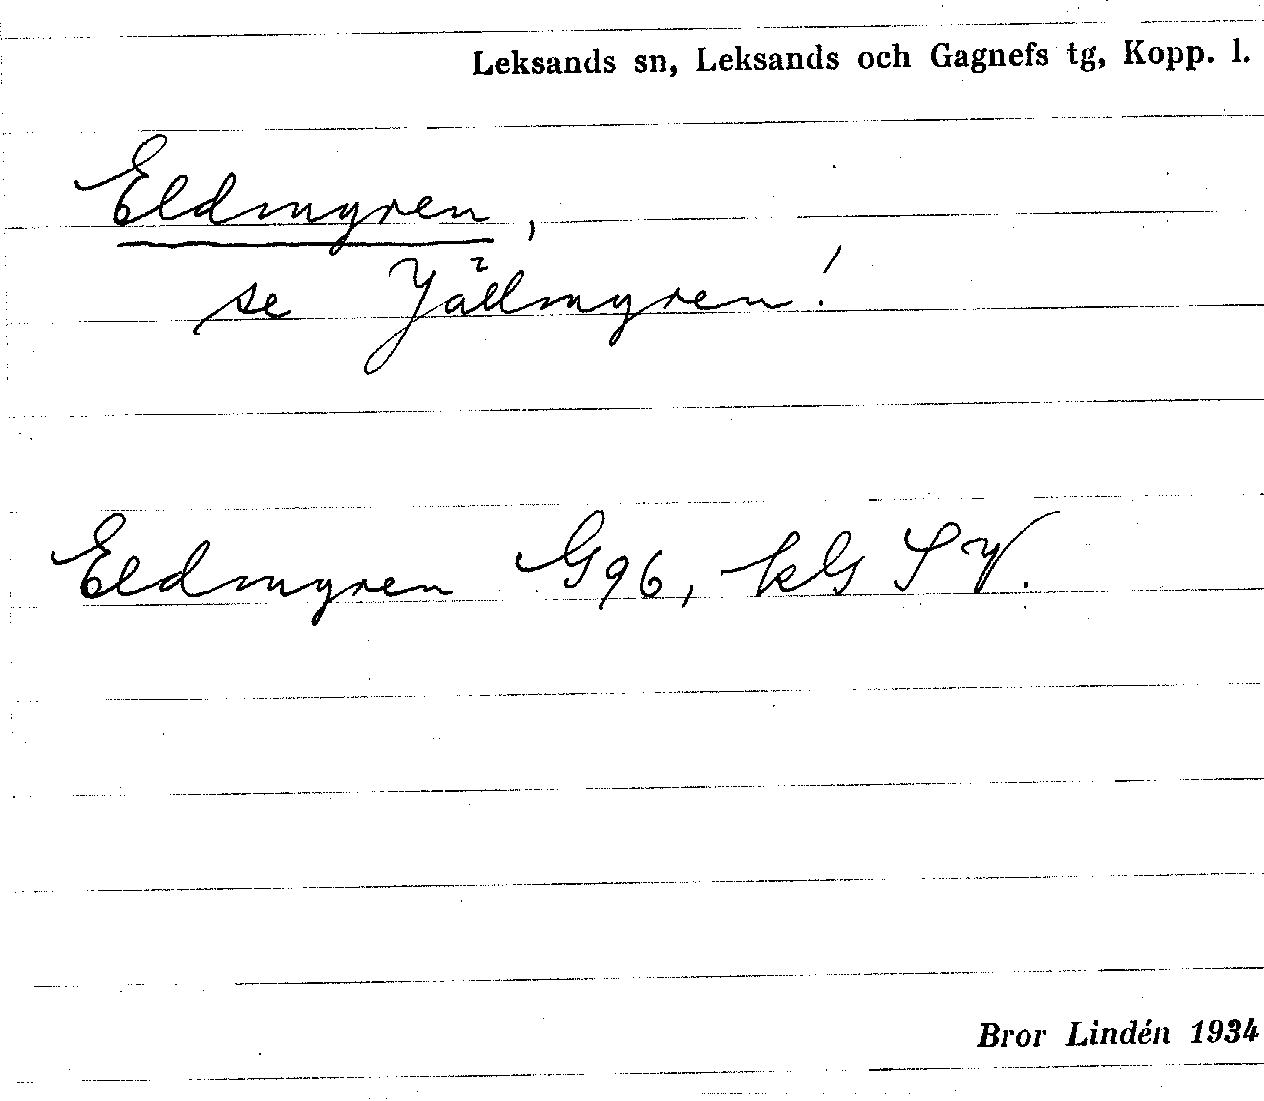 Leksands sn, Leksands och Gagnefs tg, Kopp. l.
Eldmyren,
se Jällmyren!
Eldmyren G96, kG SV.
Bror Lindén 1934